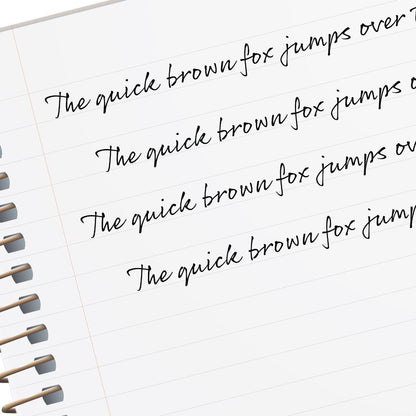 The quick brown fox jumps over
The quick brown fox jumps o
The quick brown fox jumps ov
The quick brown fox jump